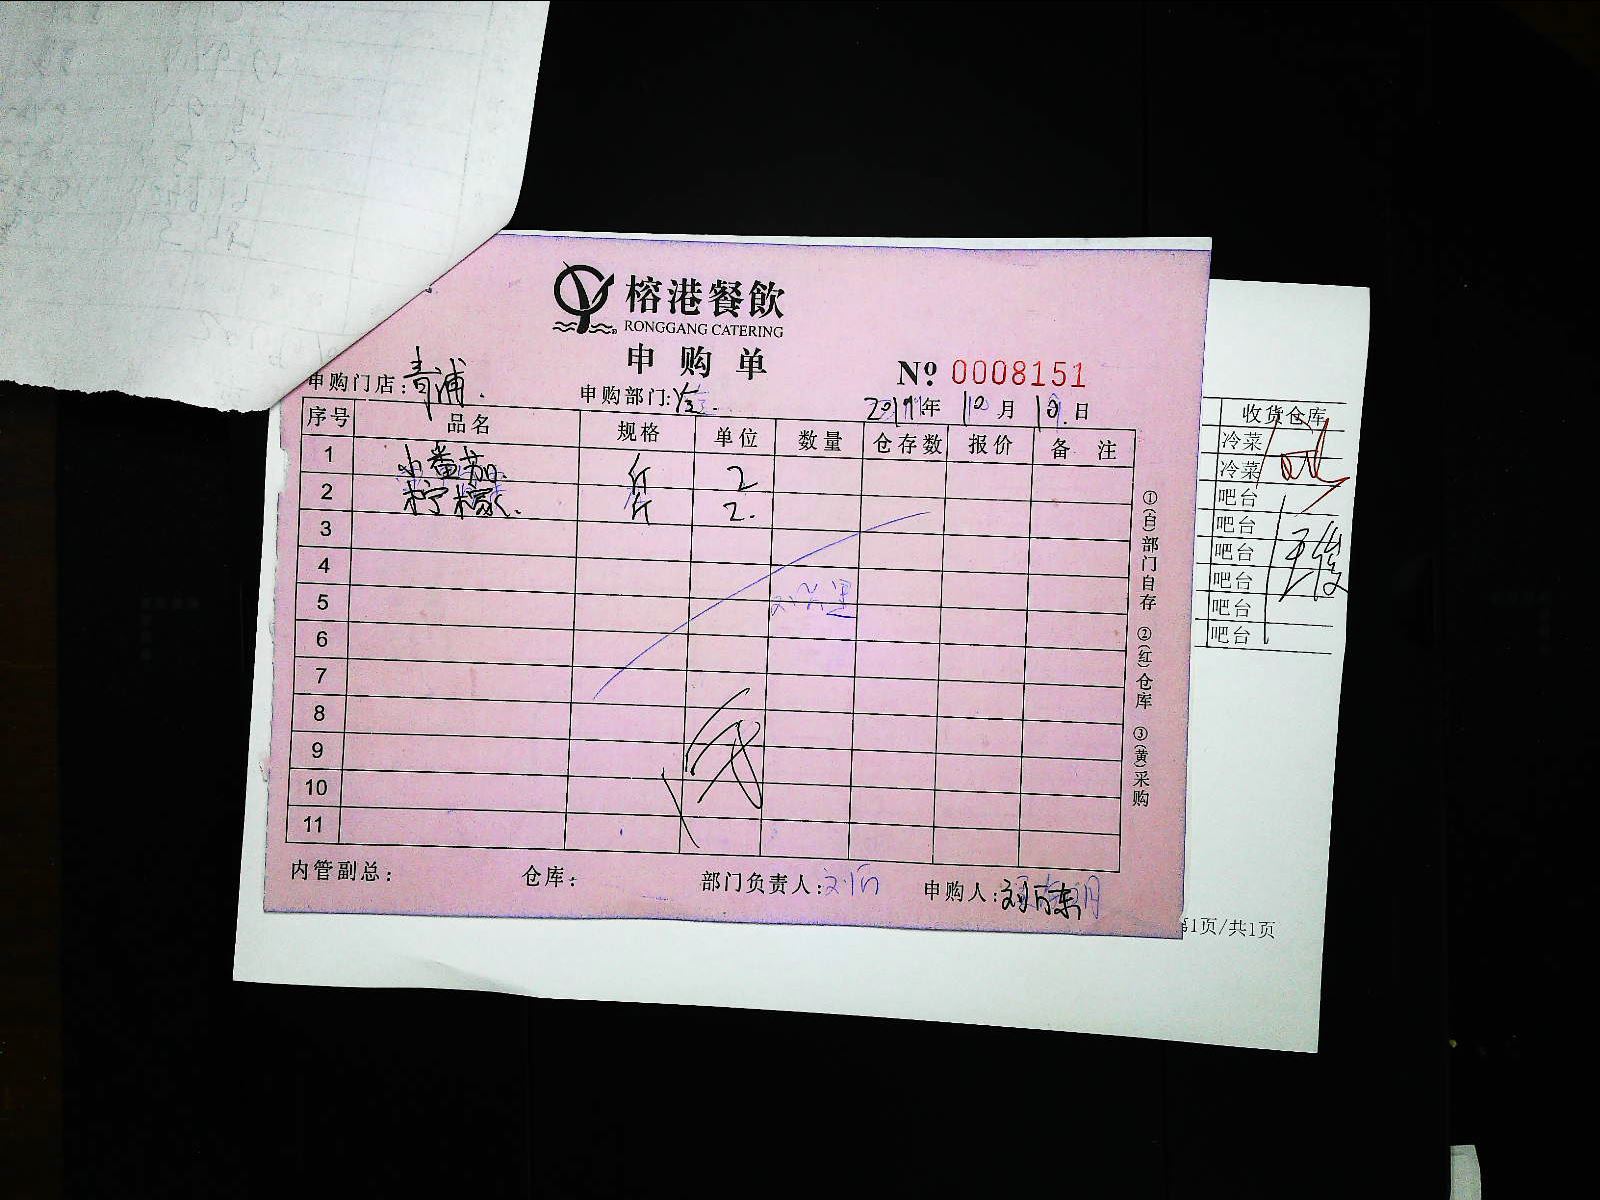 榕港餐飲
RONGGANG CATERING
申购单
№ 0008151
申购门店：青浦.
申购部门：
2019年 10月 10日
序号 品名 规格 单位 数量 仓存数 报价 备注
1 小番茄 斤 2
2 柠檬. 斤 2.
3
4
5
6
7
8
9
10
11
内管副总：
仓库：
部门负责人：
申购人：
①(白)部门自存 ②(红)仓库 ③(黄)采购
收货仓库
冷菜
冷菜
吧台
吧台
吧台
吧台
吧台
吧台
第1页/共1页